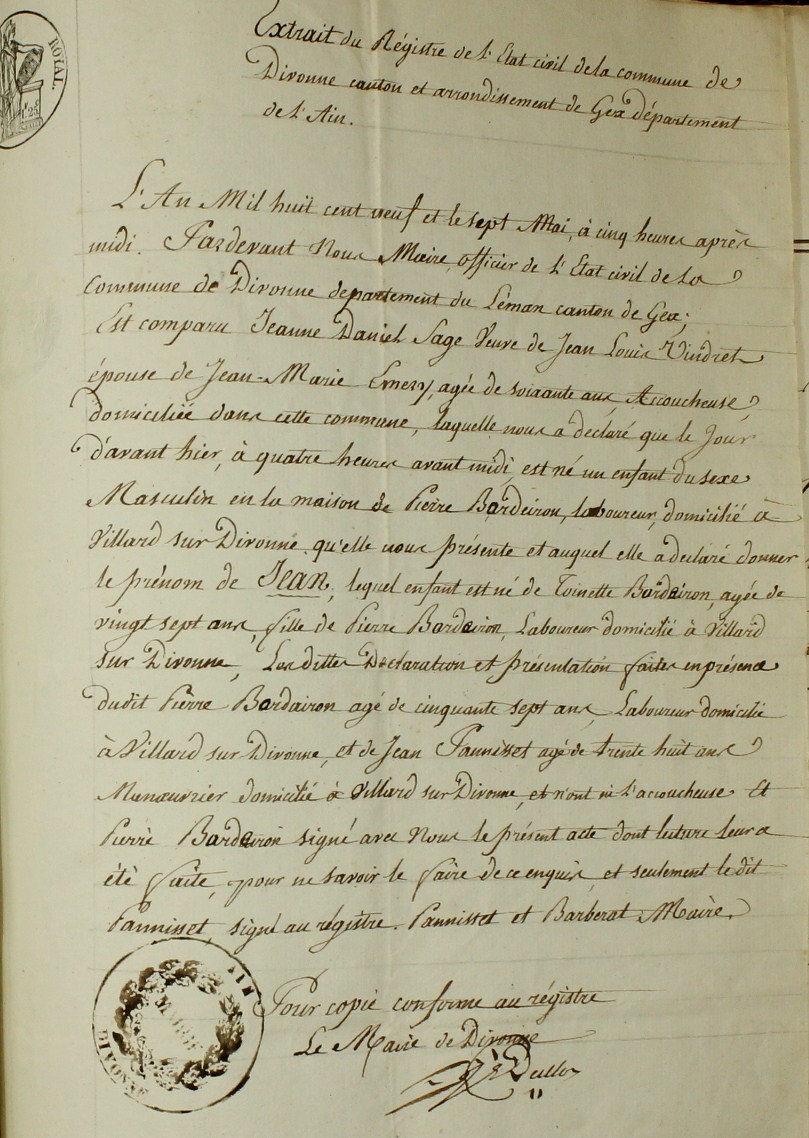 ROYAL.
1f 25
Extrait du Régistre de l'Etat civil de la commune de
Divonne canton et arrondissement de Gex département
de l'Ain.
L'An Mil huit cent neuf et le sept Mai, à cinq heures après
midi. Pardevant Nous Maire, officier de l'Etat civil de la
Commune de Divonne departement du Léman canton de Gex;
Est comparu Jeanne Daniel Sage Veuve de Jean Louis Vindret
épouse de Jean-Marie Emery, agée de soixante ans, Accoucheuse,
domiciliée dans cette commune, laquelle nous a déclaré que le Jour
d'avant hier, à quatre heures avant midi, est né un enfant du sexe
Masculin en la maison de Pierre Bardeiron, laboureur, domicilié à
Villard sur Divonne qu'elle nous présente et auquel elle a déclaré donner
le prénom de Jean, lequel enfant est né de Toinette Bardairon, agée de
vingt sept ans, fille de Pierre Bardairon, Laboureur domicilié à Villard
sur Divonne, Les dittes Déclaration et présentation faites en présence
dudit Pierre Bardairon agé de cinquante sept ans, Laboureur domicilié
à Villard sur Divonne, et de Jean Pannisset agé de trente huit ans
Manœuvrier domicilié à Villard sur Divonne, et n'ont ni l'accoucheuse Et
Pierre Bardairon signé avec Nous le présent acte dont lecture leur a
été faite, pour ne savoir le faire de ce enquis, et seulement le dit
Pannisset, signé au régistre. Pannisset et Barberat Maire.
Pour copie conforme au régistre
Le Maire de Divonne
MAIRIE
DIVONNE
AIN